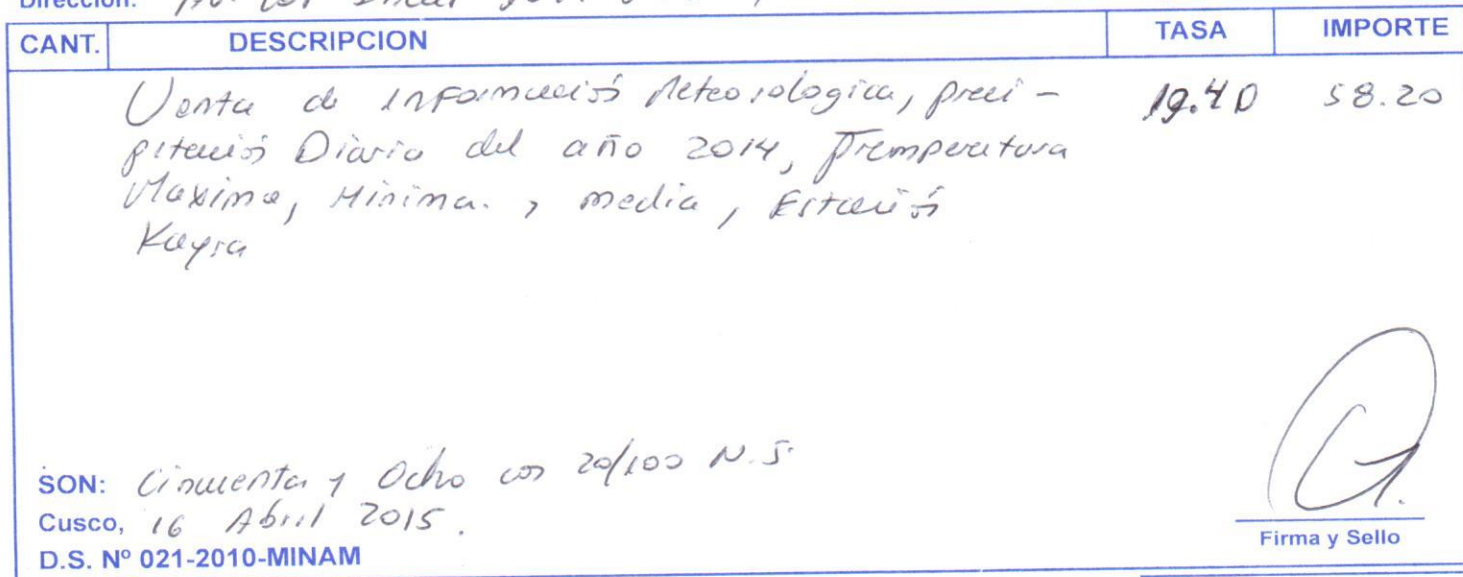 Dirección: Av. Los Incas
CANT. DESCRIPCION TASA IMPORTE
Venta de información Meteorologica, preci- 19.40 58.20
pitación Diaria del año 2014, Temperatura
Maxima, Minima. , media, Estación
Kayra
SON: Cincuenta y Ocho con 20/100 N.S.
Cusco, 16 Abril 2015.
D.S. Nº 021-2010-MINAM
Firma y Sello